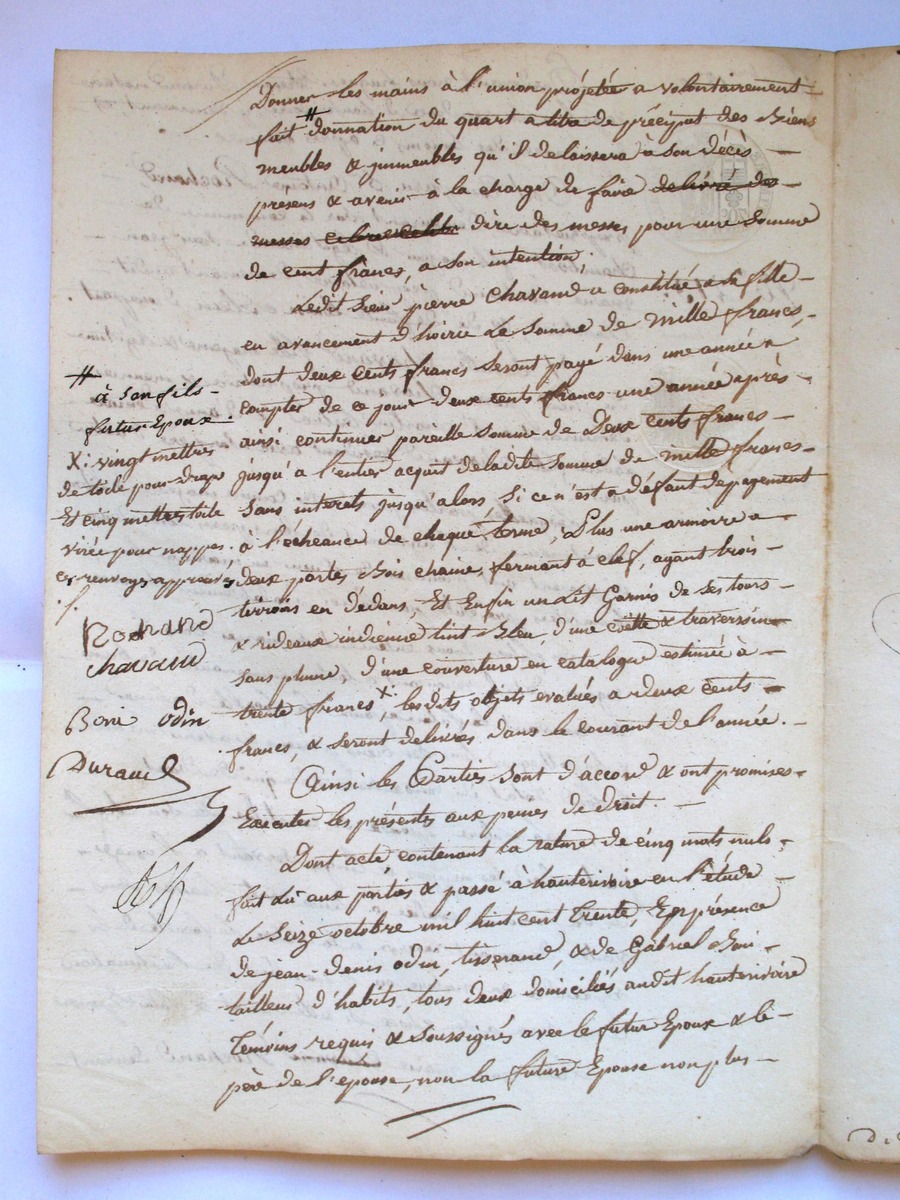 Donner les mains à l'union projetée a volontairement
fait # donnation du quart a titre de préciput des Biens
meubles & immeubles qu'il delaissera à son décès —
présens & avenir à la charge de faire delivré des
messes celbre dire des messes pour une Somme
de cent francs, a son intention;
Ledit Sieur pierre Chavand a constitué a sa fille
en avancement d'hoirie La Somme de Mille francs,
dont deux cents francs Seront payé dans une année a
compter de ce jour Deux cents francs une année après
ainsi continuer pareille Somme de Deux cents francs
jusqu'a l'entier acquit de ladite Somme de Mille francs
Sans interets jusqu'alors, Si ce n'est a défaut de payement
à l'écheance de chaque terme, Plus une armoire a
deux portes Bois chaine, fermant á clef, ayant trois
tirroirs en dedans, Et Enfin un Lit Garnis de Ses tours
& rideaux indienne teint Bleu, d'une coëtte & traversin
sans plume, d'une couverture en catalogue estimée à
trente francs X:, lesdits objets evalués a deux cents
francs, & seront delivrés dans le courant de l'année. —
Ainsi les Parties Sont d'accord & ont promises
Executer les présentes aux peines de droit. —
Dont acte, contenant la rature de cinq mots nuls,
fait Lû aux parties & passé à hauterivoire en L'étude
Le Seize octobre mil huit cent trente, En présence
de jean-Denis odin, tisserand, & de Gabriel Boni
tailleur d'habits, tous deux domiciliés audit hauterivoire
Témoins requis & Soussignés avec le futur Epoux & le
père de l'epouse, non la future Epouse non plus —
#
à Son fils
futur Epoux.
X: vingt mettres
de toile pour draps
Et cinq mettres toile
virée pour nappes.
ces renvoys approuvés
./.
Rochand
chavand
Boni odin
Durand